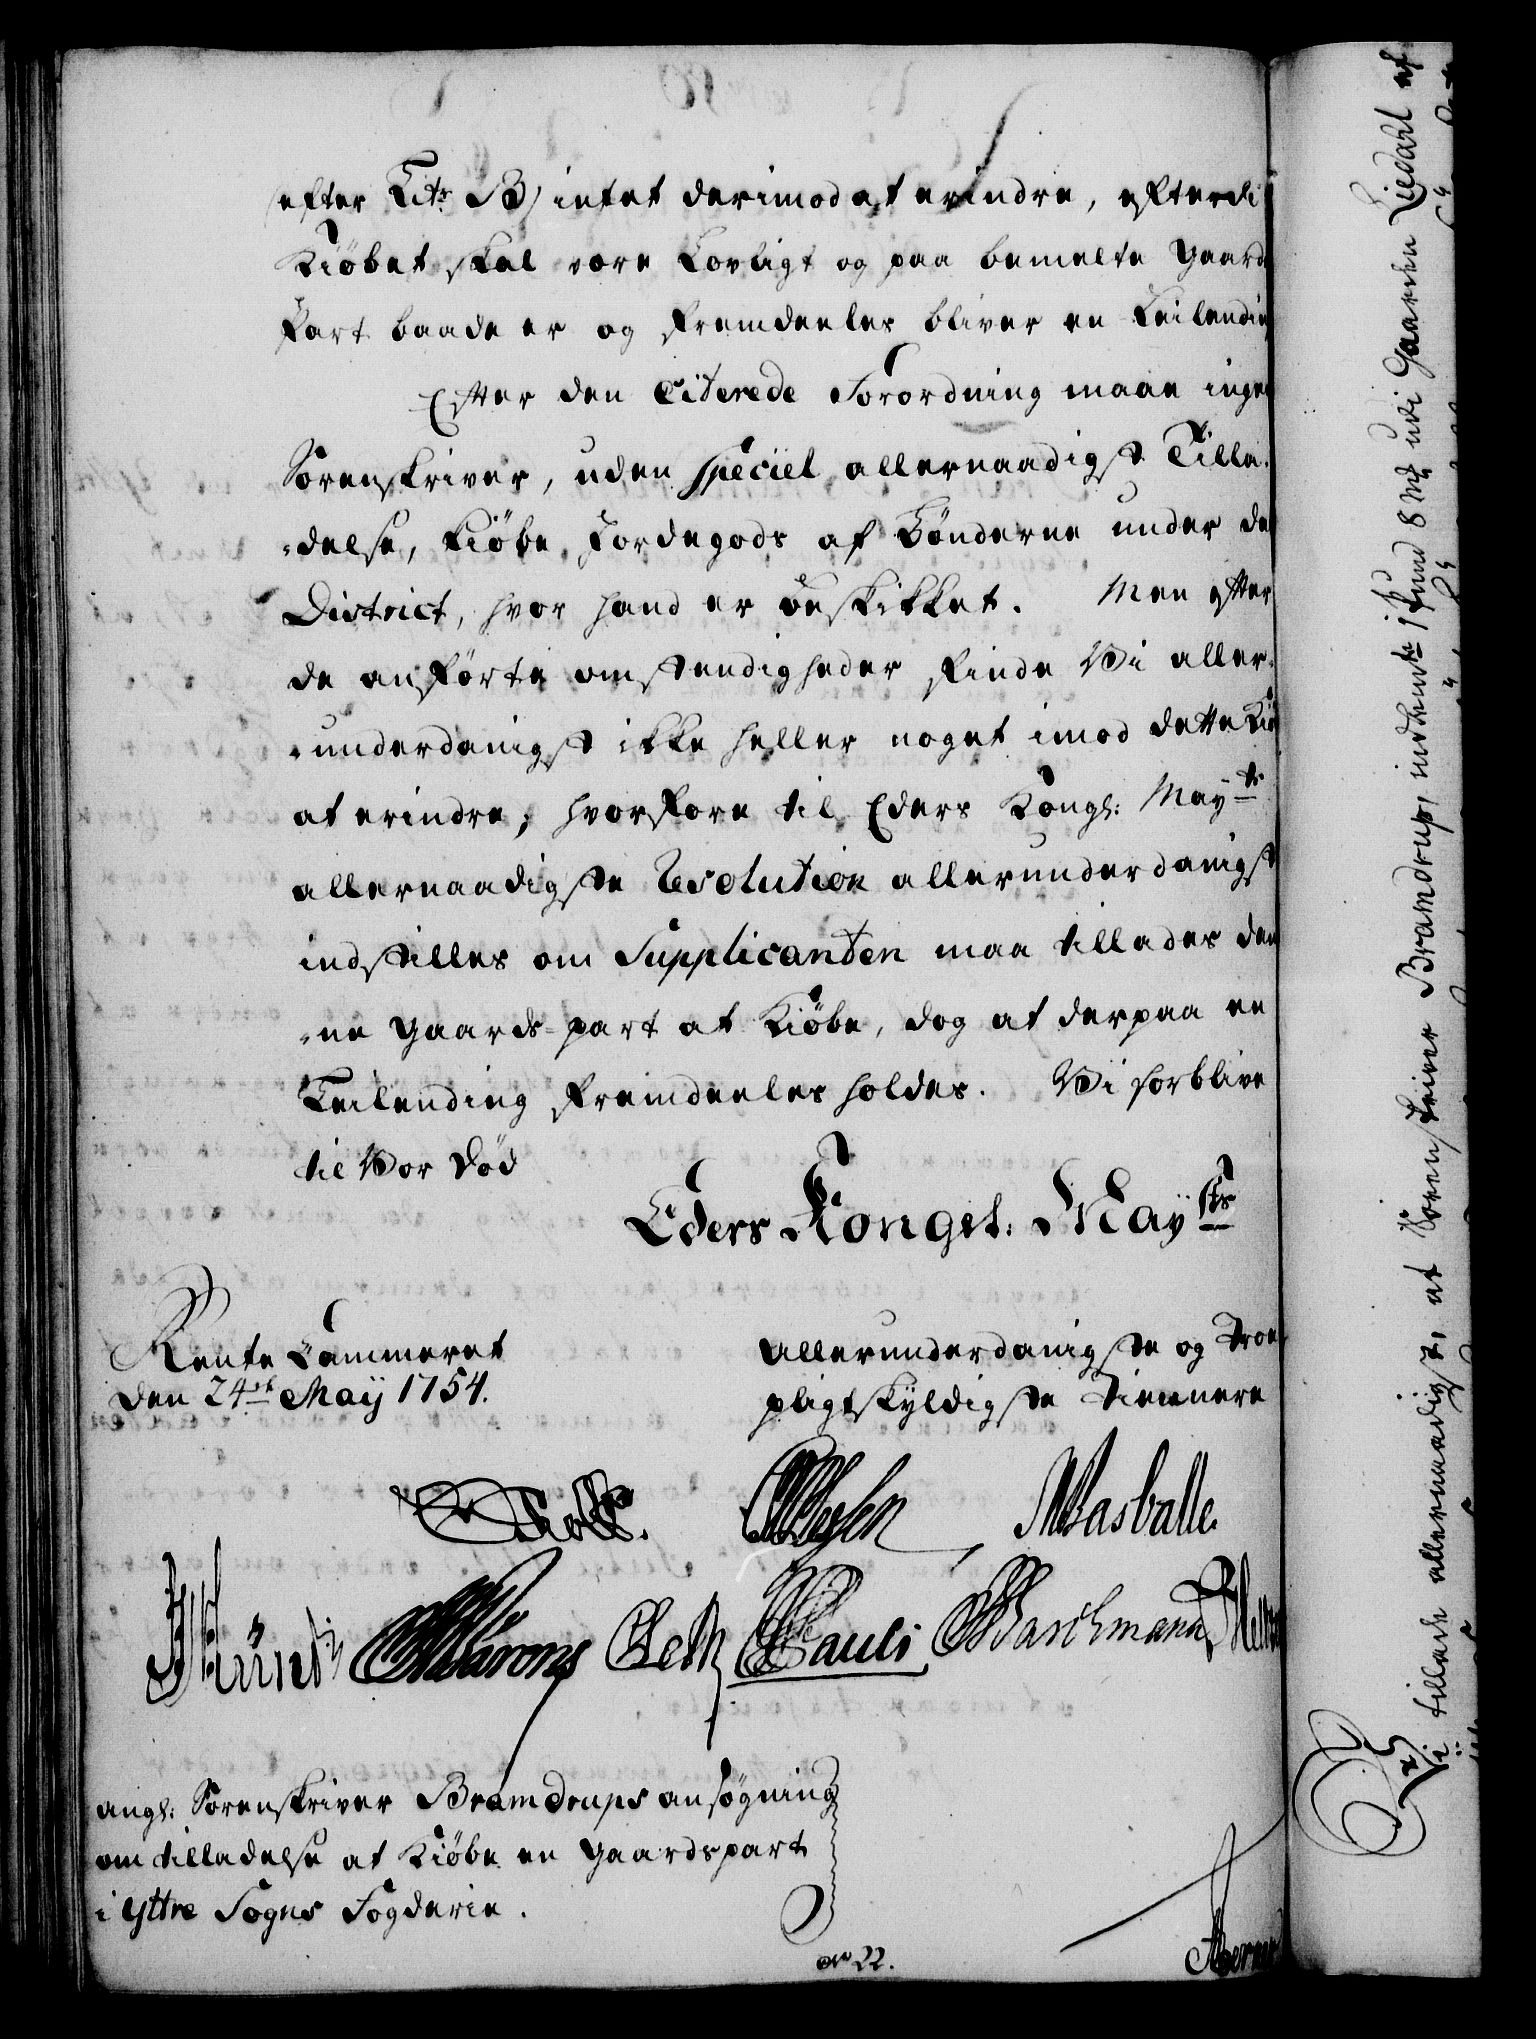 efter Litr B) intet derimod at erindre, efterdi
Kiöbet skal være Lovligt og paa bemelte Gaard
Part baade er og fremdeeles bliver en Leilendin
Efter den Citerede Forordning maae ingen
Sorenskriver, uden speciel allernaadigst Tilla-
-delse, kiöbe Jordegods af Bönderne under det
District, hvor hand er beskikket. Men efter
de anförte omstendigheder finde Vi aller-
-underdanigst ikke heller noget imod dette Kiö
at erindre; hvorfore til Eders Kongl: Mayts
allernaadigste Resolution allerunderdanigst
indstilles om Supplicanten maa tillades den
-ne Gaards-part at Kiöbe, dog at derpaa en
Leilending fremdeeles holdes. Vi forblive
til Vor Död
Eders Kongel: Mayts
Rente Cammeret
den 24de Maij 1754.
Allerunderdanigste og Troe
pligtskyldigste Tienere
Holst.
Masballe.
Pauli
angl: Sorenskriver Bramdrups ansögning
om tilladelse at Kiöbe en Gaardspart
i Yttre Sogns Fogderie.
22.
Vi tillade allernaadigst, at Sorenskriver Bramdrup, indbemte 1 Pund 8 Mk udi Gaarden Liedahl af